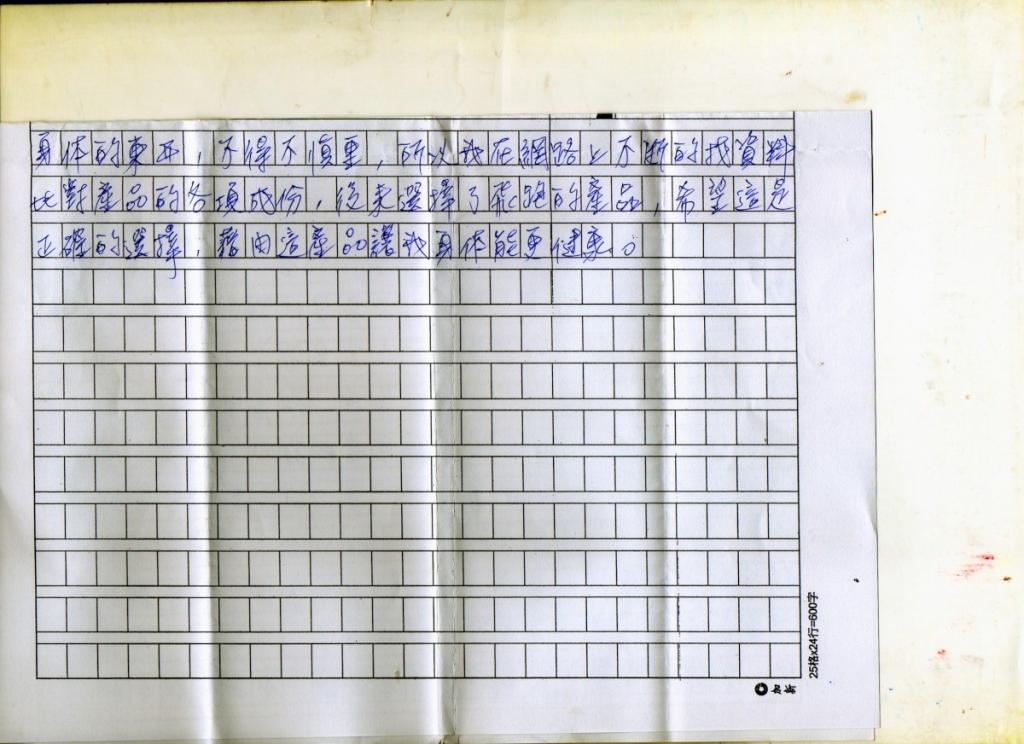 身体的東西，不得不慎重，所以我在網路上不断的找資料
比對產品的各項成份，後來選擇了飛跑的產品，希望這是
正確的選擇，藉由這產品讓我身体能更健康。
25格x24行=600字
加新